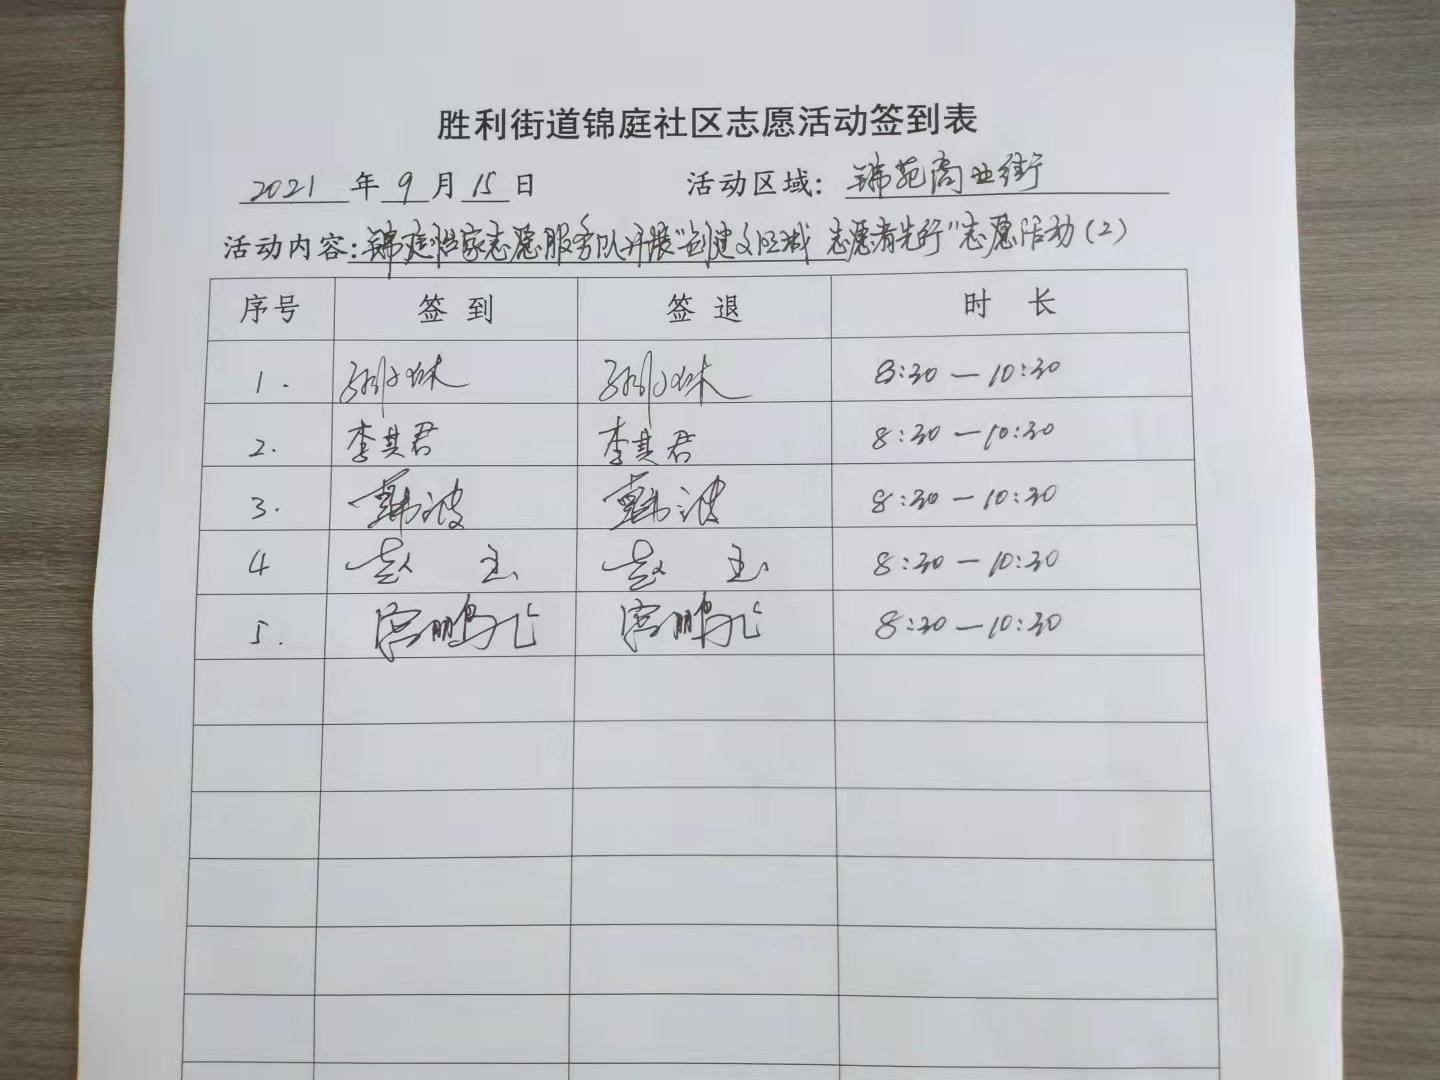 胜利街道锦庭社区志愿活动签到表
2021年9月15日 活动区域：锦苑商业街
活动内容：锦庭 家志愿服务队开展“创建文明城 志愿者先行”志愿活动(2)
序号 签到 签退 时长
1. 8:30—10:30
2. 李其君 李其君 8:30—10:30
3. 韩波 韩波 8:30—10:30
4 赵玉 赵玉 8:30—10:30
5. 宫鹏飞 宫鹏飞 8:30—10:30